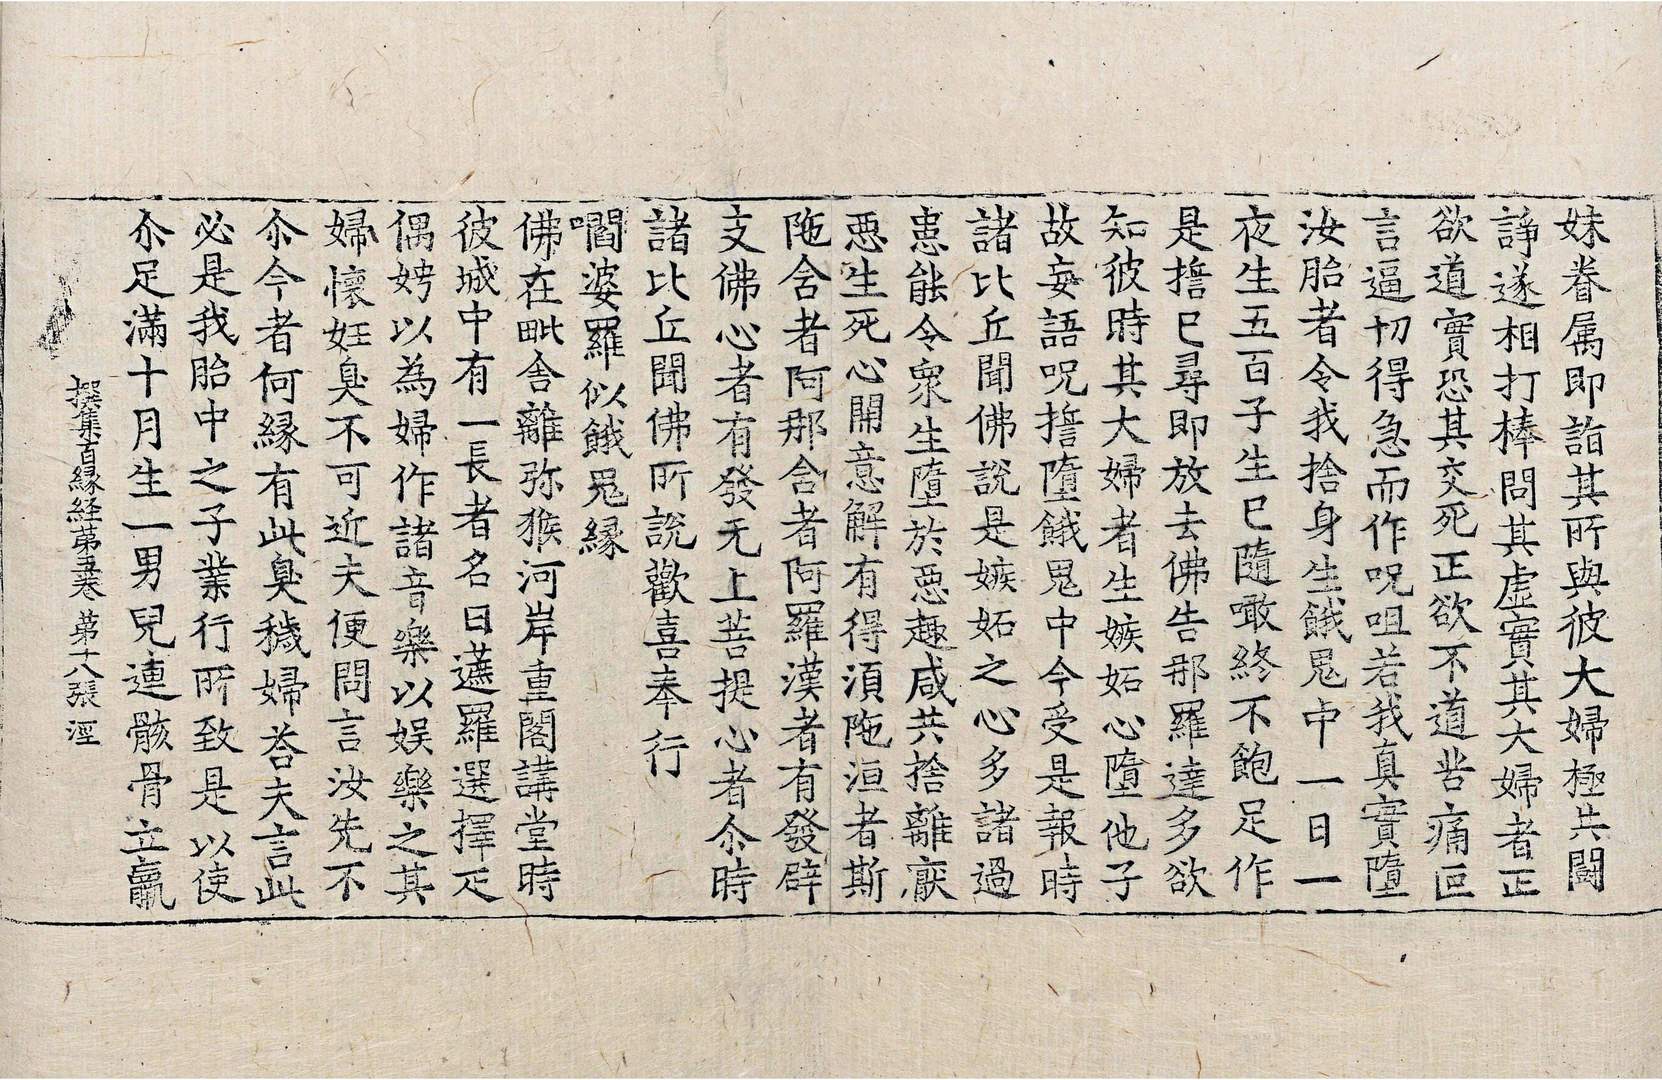 妹眷属即詣其所與彼大婦極共鬪
諍遂相打棒問其虛實其大婦者正
欲道實恐其交死正欲不道苦痛叵
言逼切得急而作呪咀若我真實墮
汝胎者令我捨身生餓鬼中一日一
夜生五百子生已隨噉終不飽足作
是誓已尋即放去佛告那羅達多欲
知彼時其大婦者生嫉妬心墮他子
故妄語呪誓墮餓鬼中今受是報時
諸比丘聞佛說是嫉妬之心多諸過
患能令衆生墮於惡趣咸共捨離厭
惡生死心開意解有得湏陁洹者斯
陁含者阿那含者阿羅漢者有發辟
支佛心者有發无上菩提心者尒時
諸比丘聞佛所說歡喜奉行
嚪婆羅似餓鬼緣
佛在毗舍離弥猴河岸重閣講堂時
彼城中有一長者名曰遮羅選擇疋
偶娉以為婦作諸音樂以娛樂之其
婦懷妊臭不可近夫便問言汝先不
尒今者何緣有此臭穢婦荅夫言此
必是我胎中之子業行所致是以使
尒足滿十月生一男兒連骸骨立羸
撰集百緣経第五卷 第十八張 淫